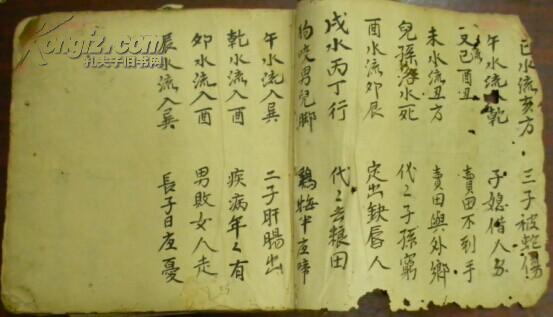 Kongfz.com
孔夫子旧书网
巳水流亥方 三子被蛇傷
午水流乾 子媳偕人
又已酉丑 賣田不到手
未水流丑方 賣田與外鄉
兒孫落水死 代〻子孫窮
酉水流卯辰 定出缺唇人
戌水丙丁行 代〻去粮田
狗咬男兒脚 鷄啼半夜啼
午水流入巽 二子肝腸出
乾水流入酉 疾病年〻有
卯水流入酉 男敗女人走
辰水流入巽 長子日夜憂